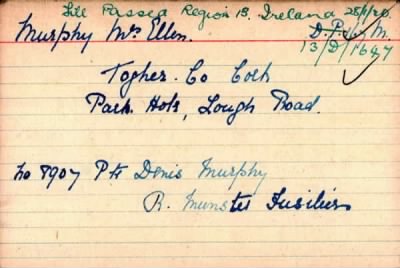 File Passed Region 13. Ireland 25/1/20.
Murphy Mrs Ellen. D.P. M.
13/D/1647
Togher. Co Cork
Park Hots, Lough Road.
No 8907 Pte Denis Murphy
R. Munster Fusiliers